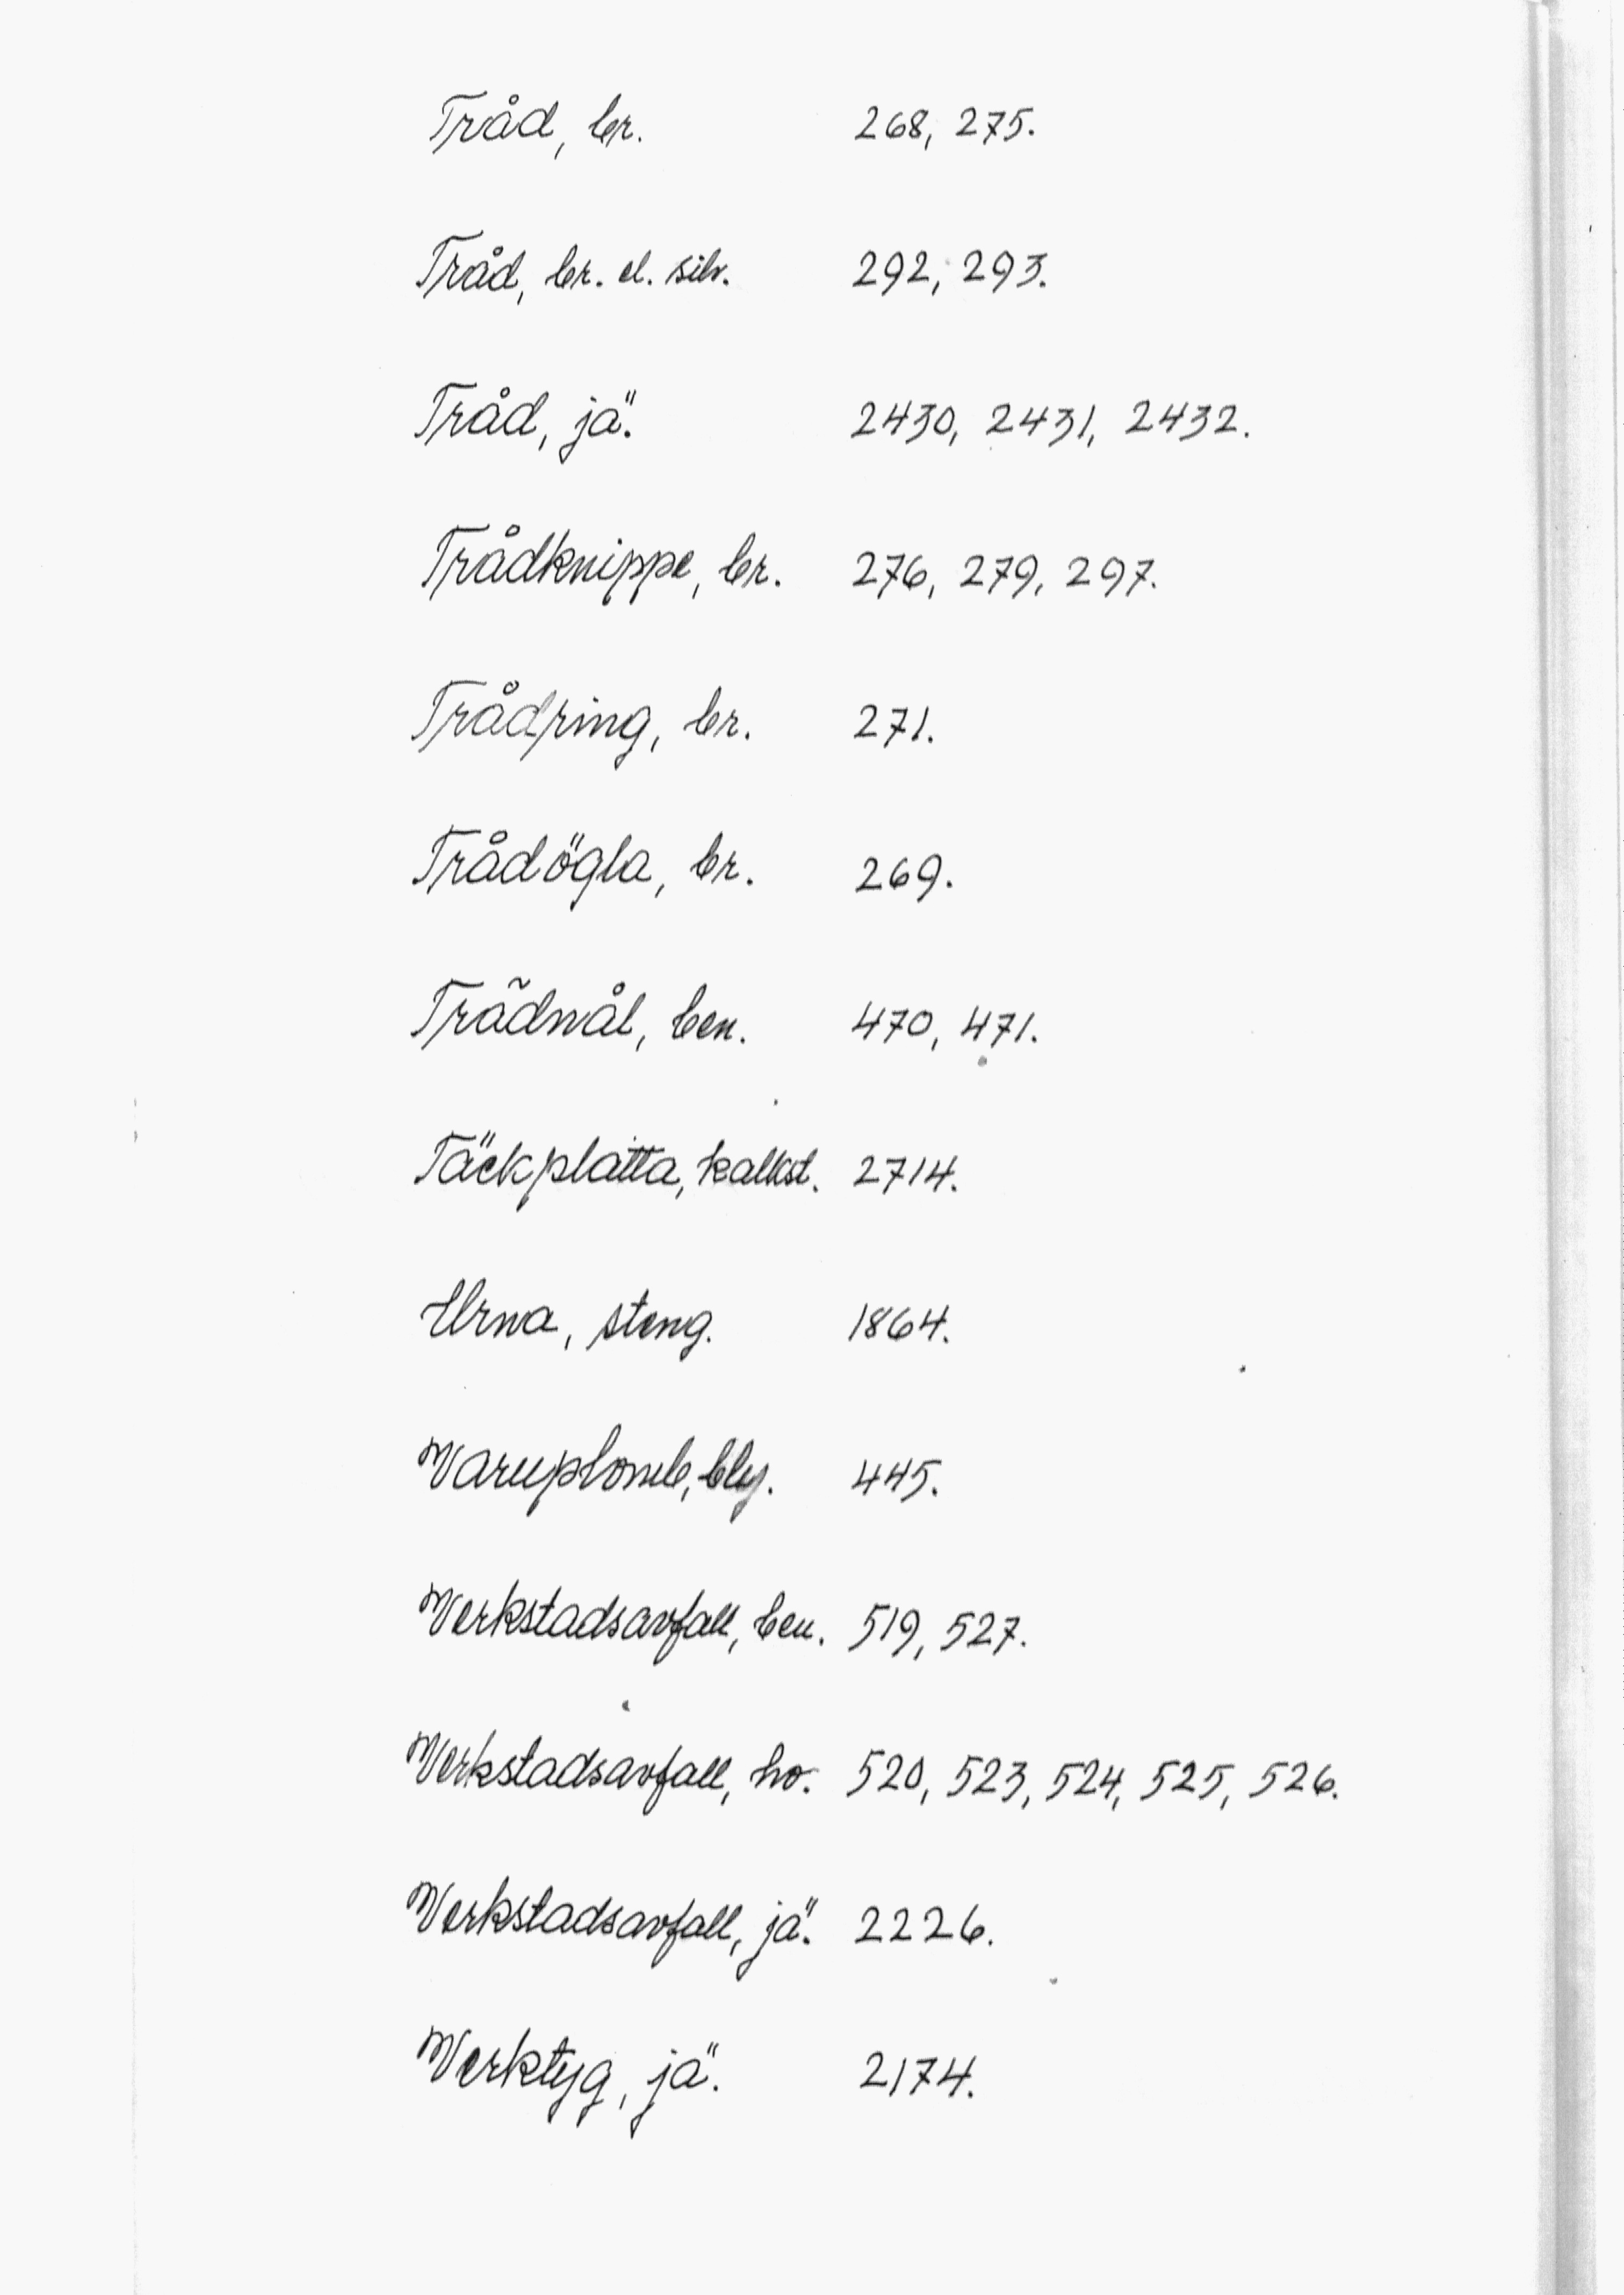 Tråd, br. 268, 275.
Tråd, br. el. silv. 292, 293.
Tråd, jä. 2430, 2431, 2432.
Trådknippe, br. 276, 279, 297.
Trådring, br. 271.
Trådögla, br. 269.
Trädnål, ben. 470, 471.
Täckplatta, kalkst. 2714.
Urna, steng. 1864.
Varuplomb, bly. 445.
Verkstadsavfall, ben. 519, 527.
Verkstadsavfall, ho. 520, 523, 524, 525, 526.
Verkstadsavfall, jä. 2226.
Verktyg, jä. 2174.